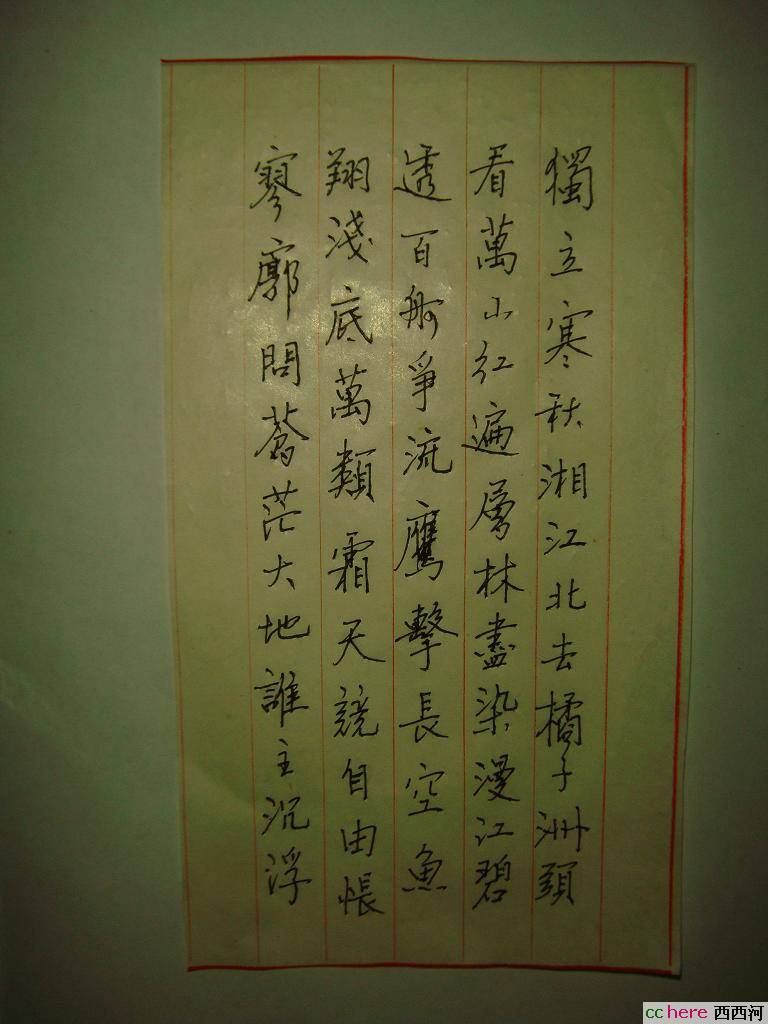 獨立寒秋湘江北去橘子洲頭
看萬山紅遍層林盡染漫江碧
透百舸爭流鷹擊長空魚
翔淺底萬類霜天競自由悵
寥廓問蒼茫大地誰主沉浮
cchere 西西河